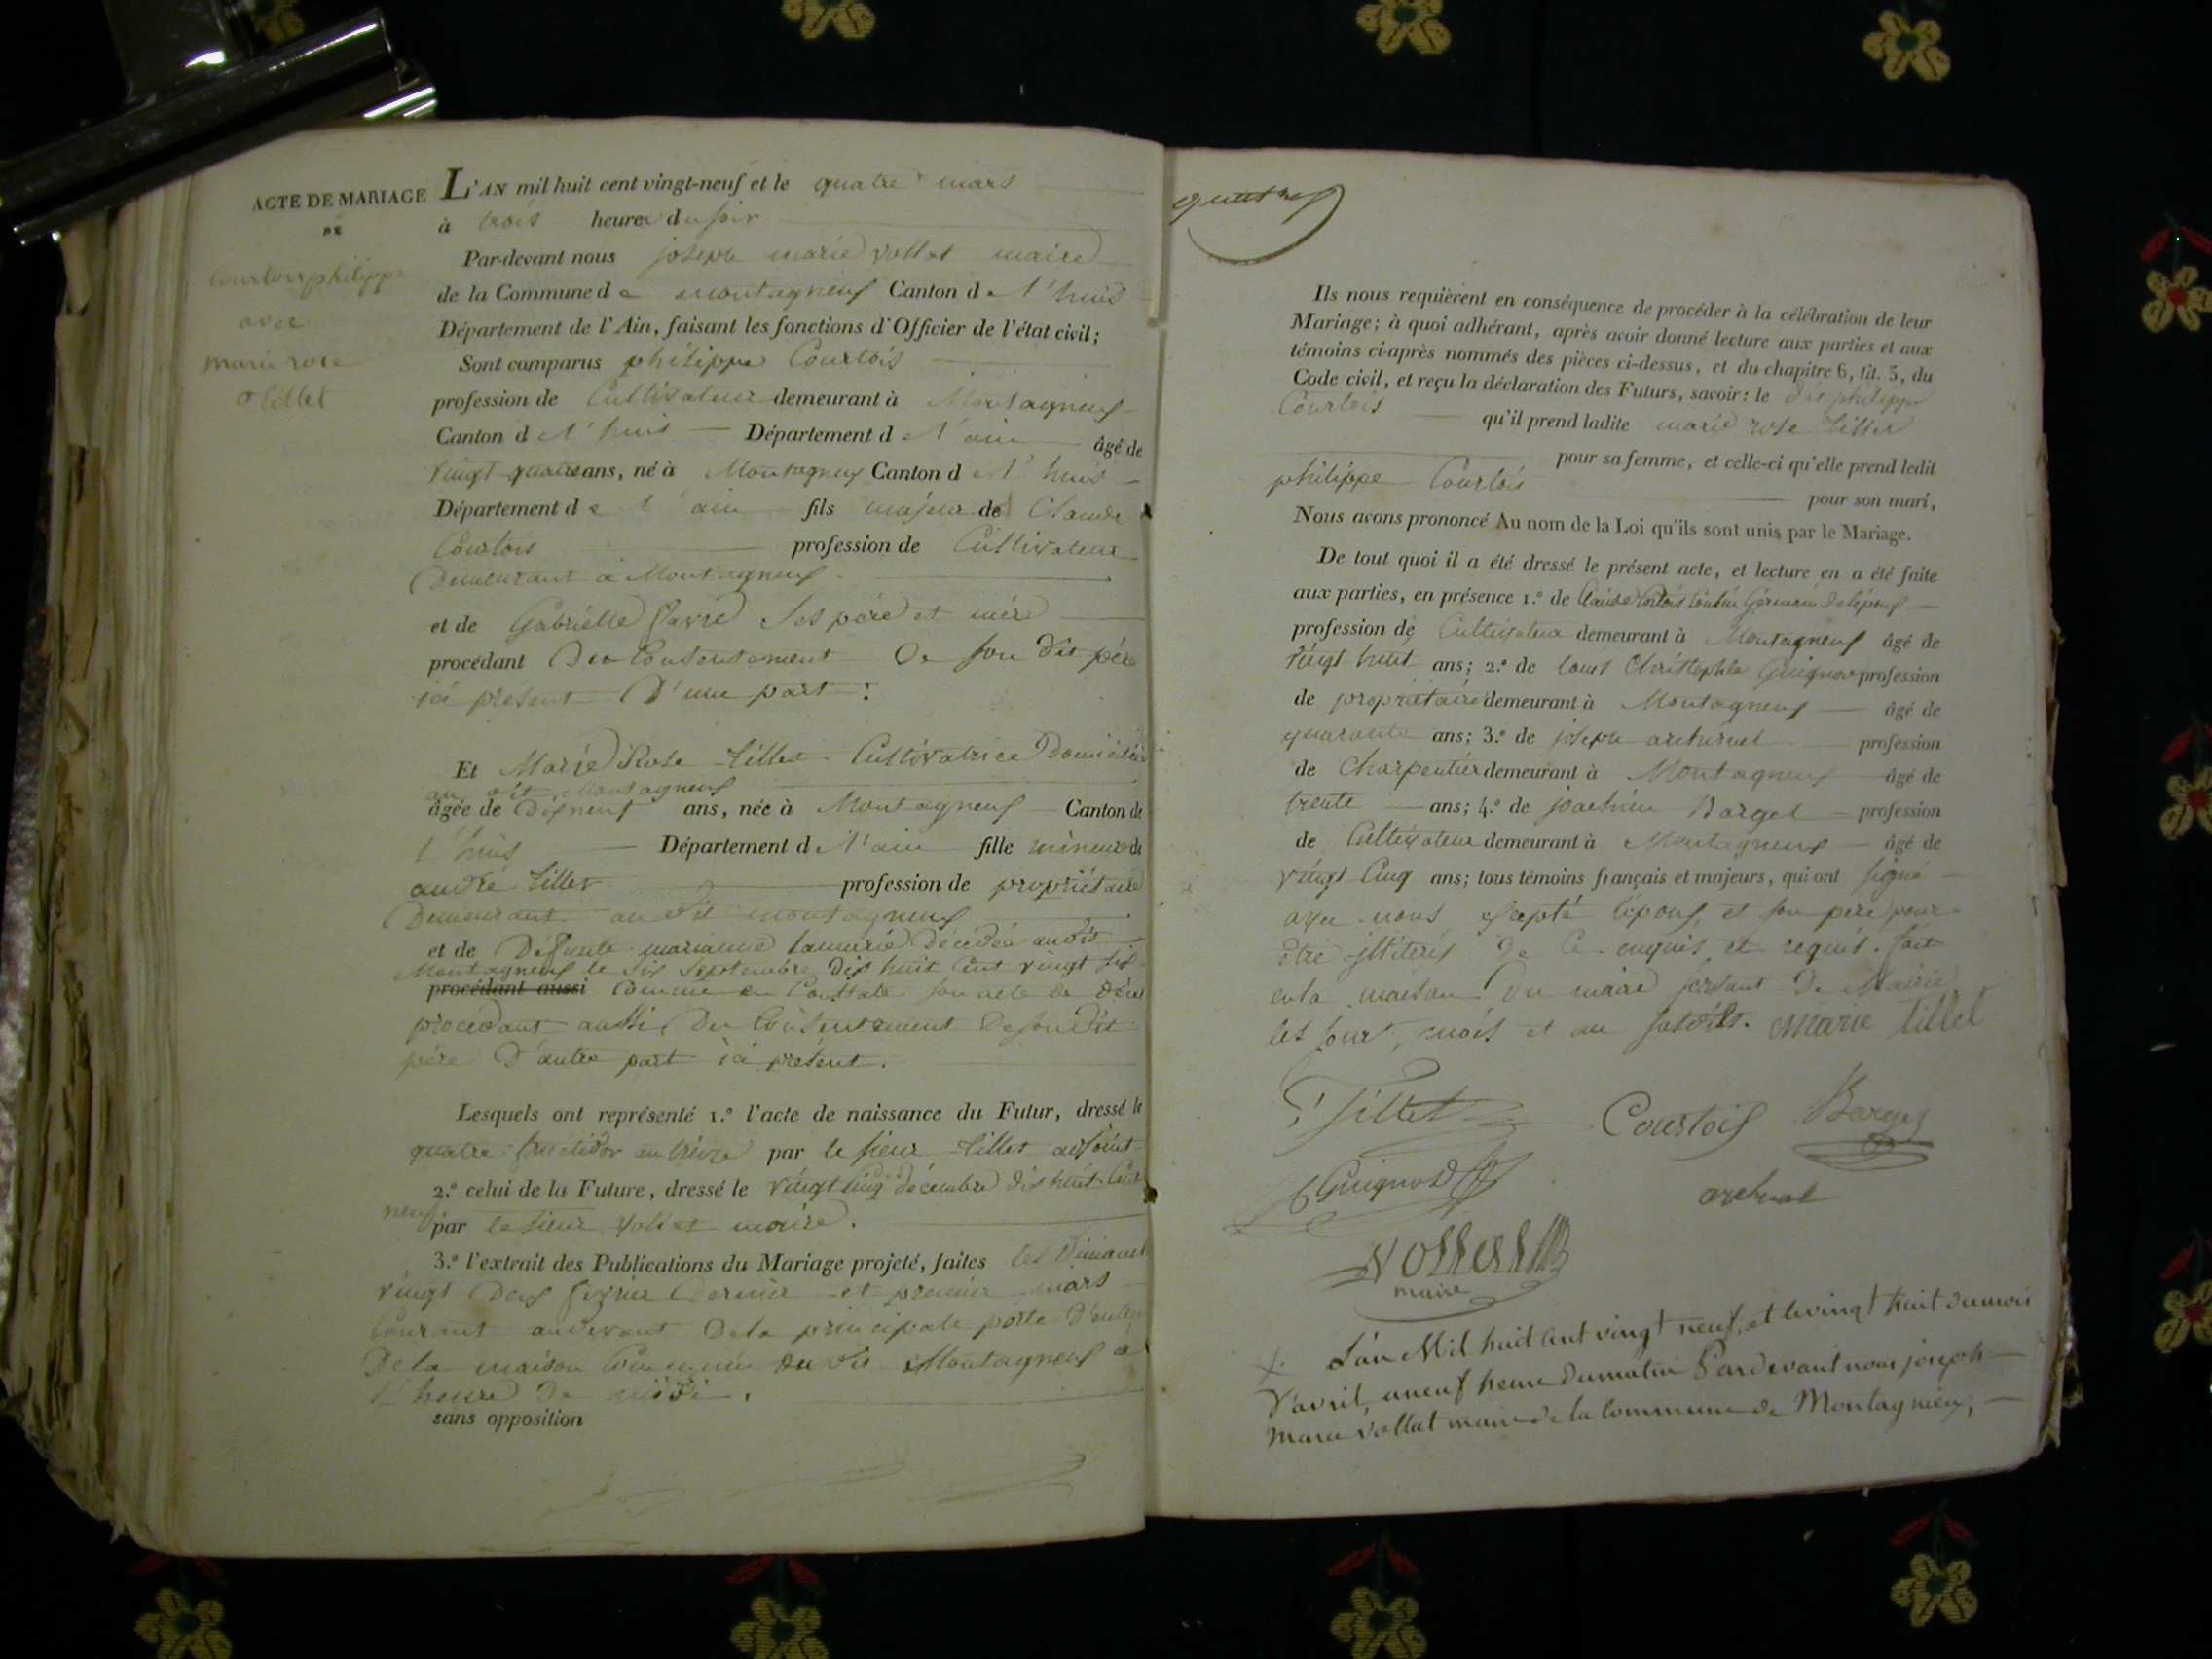 ACTE DE MARIAGE
DE
Courtois philippe
avec
marie rose
tillet
L'AN mil huit cent vingt-neuf et le quatre mars
à trois heures du soir
Par-devant nous joseph marie vollet maire
de la Commune de montagneux Canton de l'huis
Département de l'Ain, faisant les fonctions d'Officier de l'état civil;
Sont comparus philippe Courtois
profession de Cultivateur demeurant à Montagneux
Canton de l'huis Département de l'ain âgé de
vingt quatre ans, né à Montagneux Canton de l'huis
Département de l'ain fils majeur de Claude
Courtois profession de Cultivateur
Demeurant à Montagneux
et de Gabrielle favre ses père et mère
procédant du Consentement De son dit père
ici présent D'une part :
Et Marie Rose tillet Cultivatrice Domiciliée
au dit Montagneux
âgée de Dixneuf ans, née à Montagneux Canton de
l'huis Département de l'ain fille mineure de
andré tillet profession de propriétaire
Demeurant au dit montagneux
et de Defunte marianne décédée audit
Montagneux le six septembre dix huit Cent vingt six
procédant aussi Comme en Constate son acte de décès
procédant aussi Du Consentement De son Dit
père D'autre part ici présent.
Lesquels ont représenté 1.º l'acte de naissance du Futur, dressé le
quatre fructidor an treize par le sieur tillet adjoint
2.º celui de la Future, dressé le vingt Cinq décembre dix huit Cent
neuf par le sieur vollet maire.
3.º l'extrait des Publications du Mariage projeté, faites les Dimanches
vingt Deux février Dernier et premier mars
Courant audevant De la principale porte D'entrée
De la maison Commune du dit Montagneux à
l'heure De midi.
sans opposition
Ils nous requièrent en conséquence de procéder à la célébration de leur
Mariage; à quoi adhérant, après avoir donné lecture aux parties et aux
témoins ci-après nommés des pièces ci-dessus, et du chapitre 6, tit. 5, du
Code civil, et reçu la déclaration des Futurs, savoir: le dit philippe
Courtois qu'il prend ladite marie rose tillet
pour sa femme, et celle-ci qu'elle prend ledit
philippe Courtois pour son mari,
Nous avons prononcé Au nom de la Loi qu'ils sont unis par le Mariage.
De tout quoi il a été dressé le présent acte, et lecture en a été faite
aux parties, en présence 1.º de Claude Courtois Cousin Germain De l'époux
profession de Cultivateur demeurant à Montagneux âgé de
vingt huit ans; 2.º de louis Christophle Guignod profession
de propriétaire demeurant à Montagneux âgé de
quarante ans; 3.º de joseph profession
de Charpentier demeurant à Montagneux âgé de
trente ans; 4.º de joachim Barget profession
de Cultivateur demeurant à Montagneux âgé de
vingt Cinq ans; tous témoins français et majeurs, qui ont signé
avec nous excepté l'époux et son père pour
être illiterés De Ce enquis et requis. fait
en la maison Du maire servant De Mairie
les jour, mois et an susdits. Marie tillet
Tillet
Courtois
Barget
Guignod
Vollet
maire
L'an Mil huit cent vingt neuf, et le vingt huit du mois
d'avril, a neuf heure du matin Pardevant nous joseph
marie vollat maire de la Commune de Montagnieu,